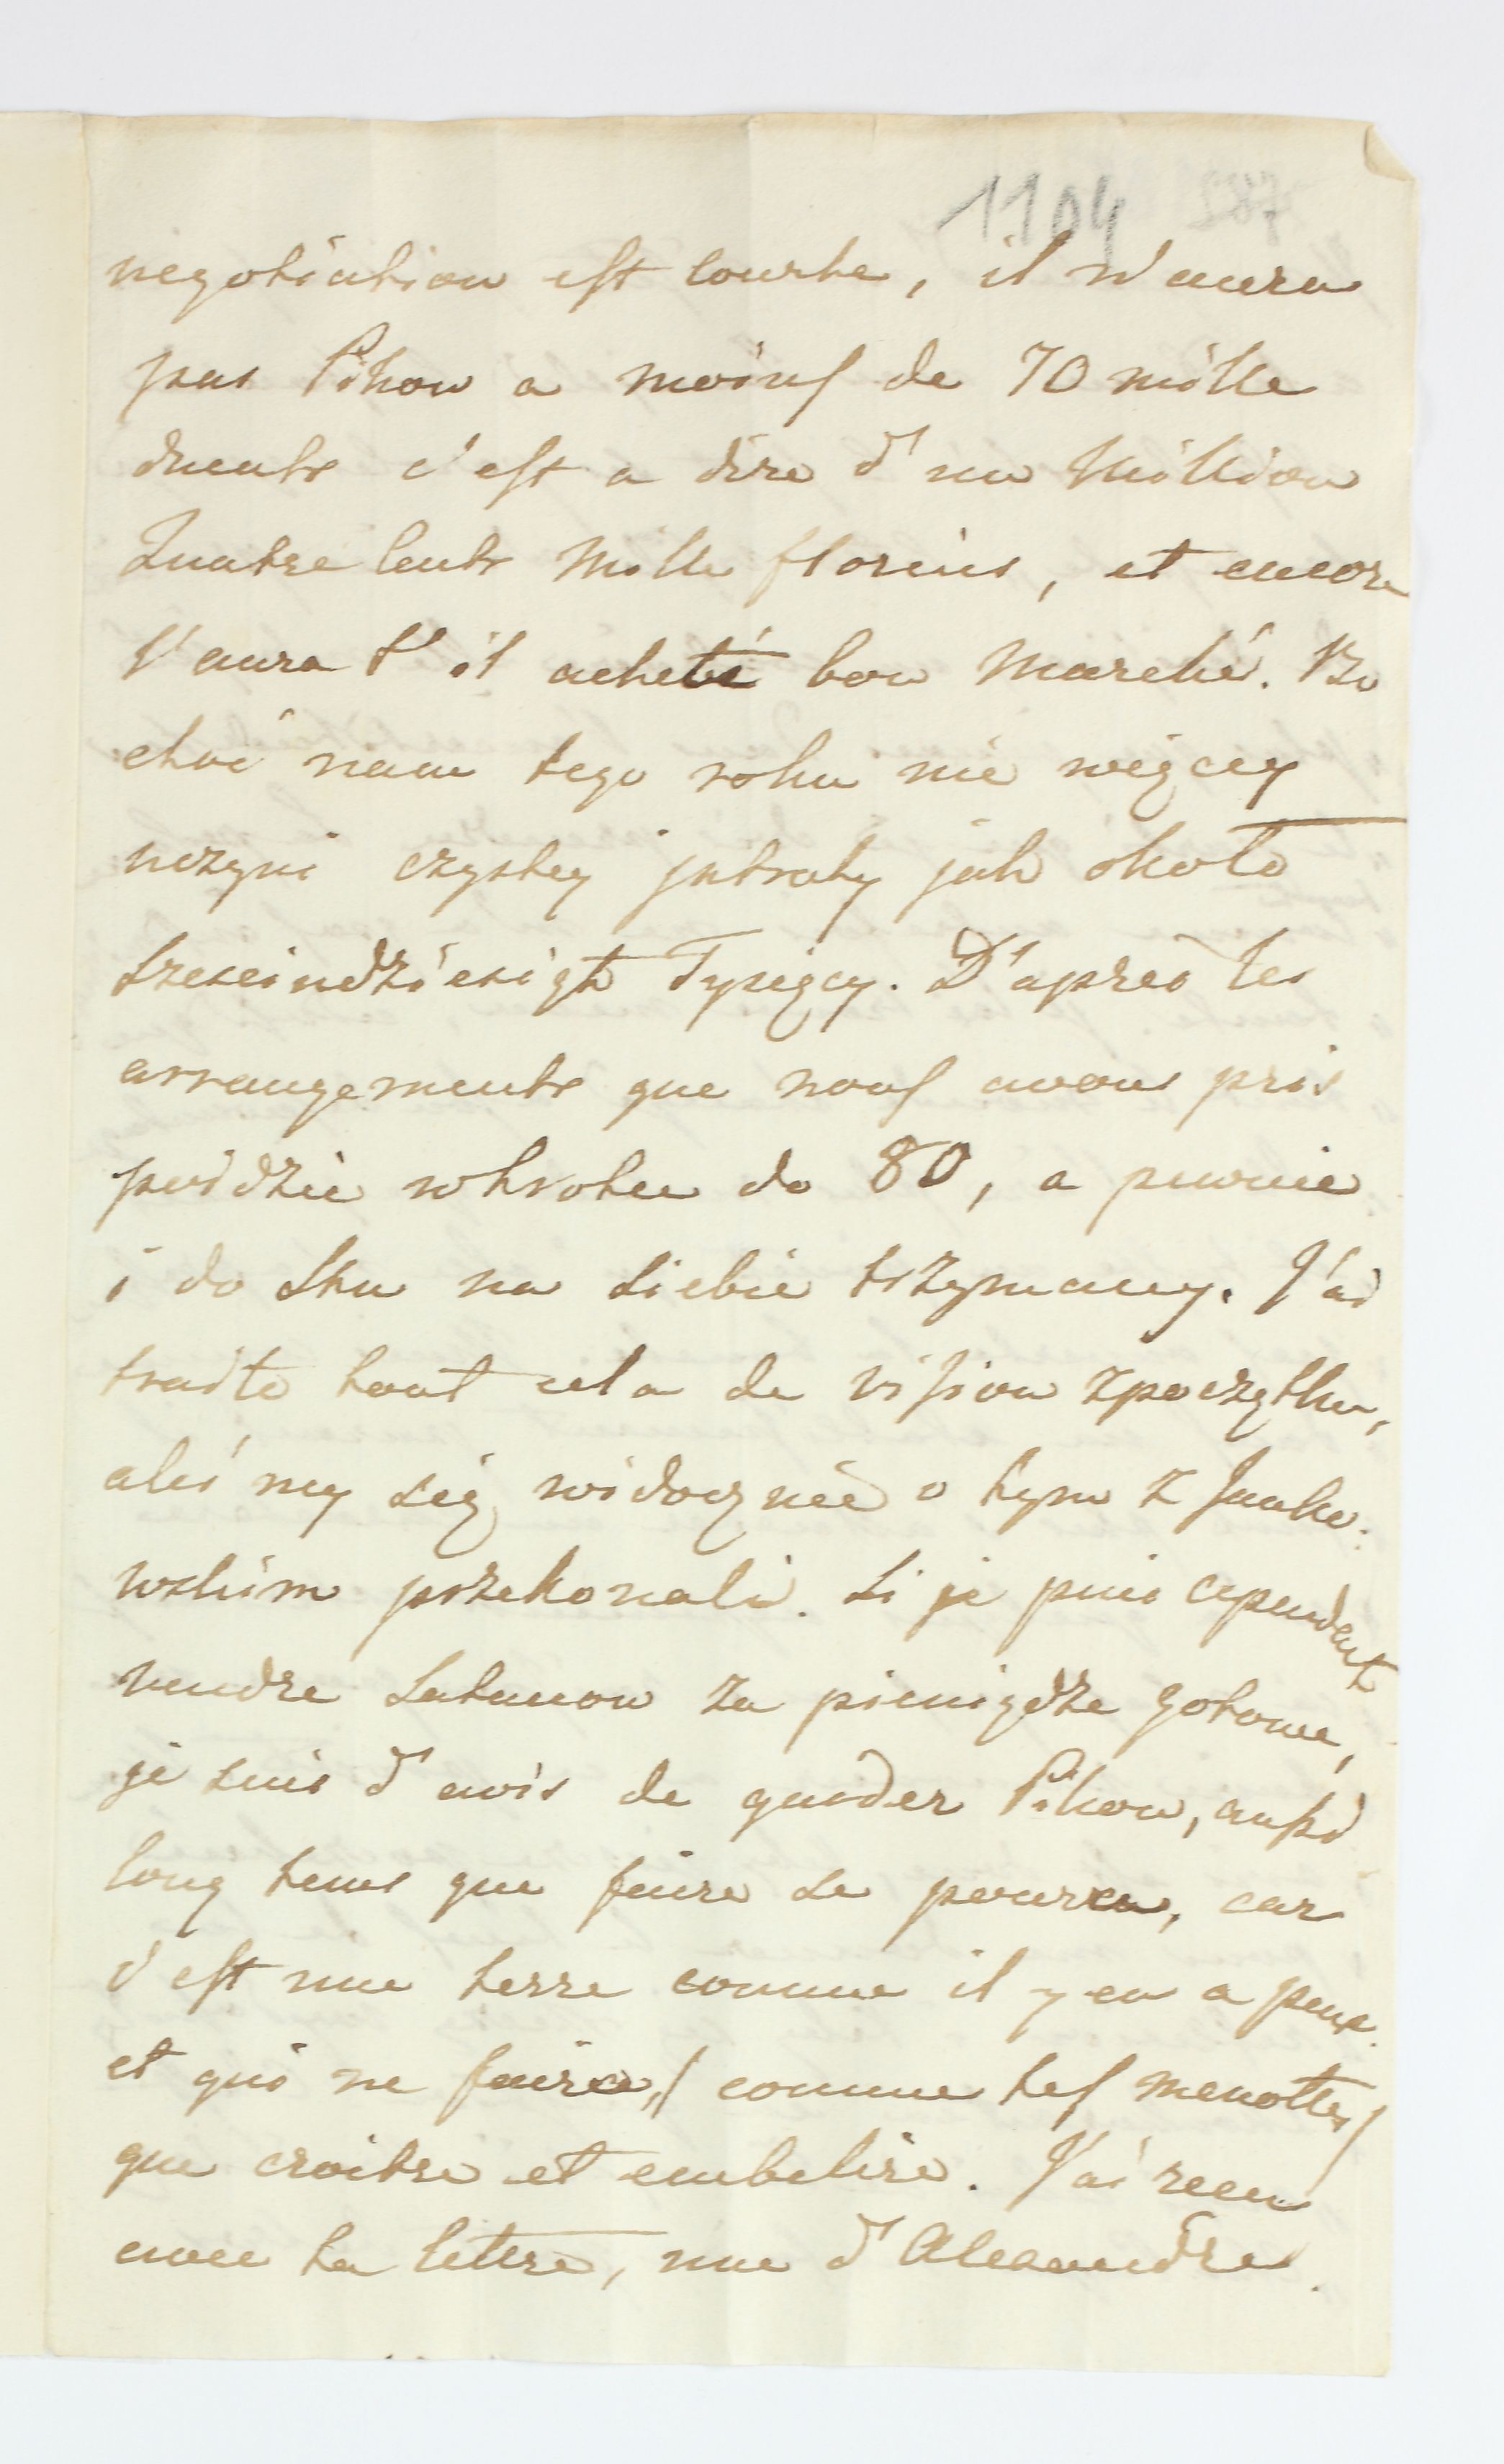 1104
negotiation est courte, il n'aura
pas Pikow a moins de 70 mille
ducats c'est a dire d'un Million
Quatre Cents Mille florins, et encore
l'aura t'il acheté bon Marché. Bo
choć nam tego roku nie więcey
uczyni czystey jntraty jak około
sześcindziesiąt Tysięcy. D'après les
arrangements que nous avons pris
puidzie wkrotce do 80, a pewnie
i do Stu na siebie trzymany. J'ai
traité tout cela de vision zpoczątku,
aleś my się widocznie o tym z Janko:
wskim przekonali. Si je puis cependent
vendre Satanow za pieniądze gotowe,
je suis d'avis de garder Pikow, aussi
long tems que faire se pourra, car
c'est une terre comme il y en a peux.
et qui ne faira, / comme tes menottes /
que croitre et embelire. J'ai recu
avec ta lettre, une d'Alexandre.